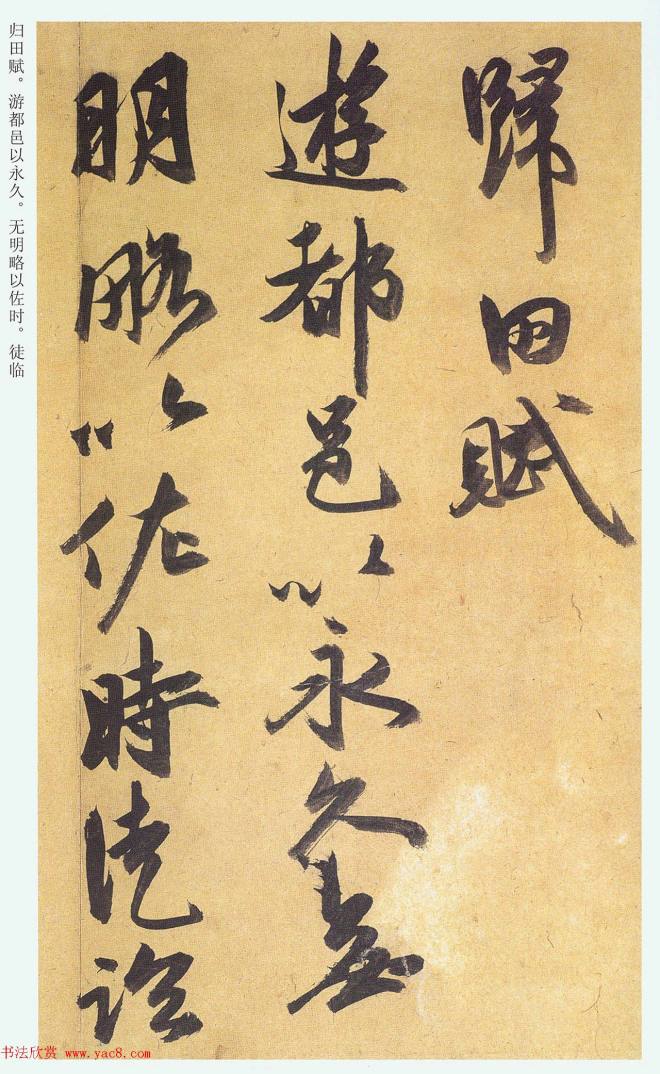 歸田賦
遊都邑以永久無
明略以佐時徒臨
归田赋。游都邑以永久。无明略以佐时。徒临
书法欣赏 www.yac8.com